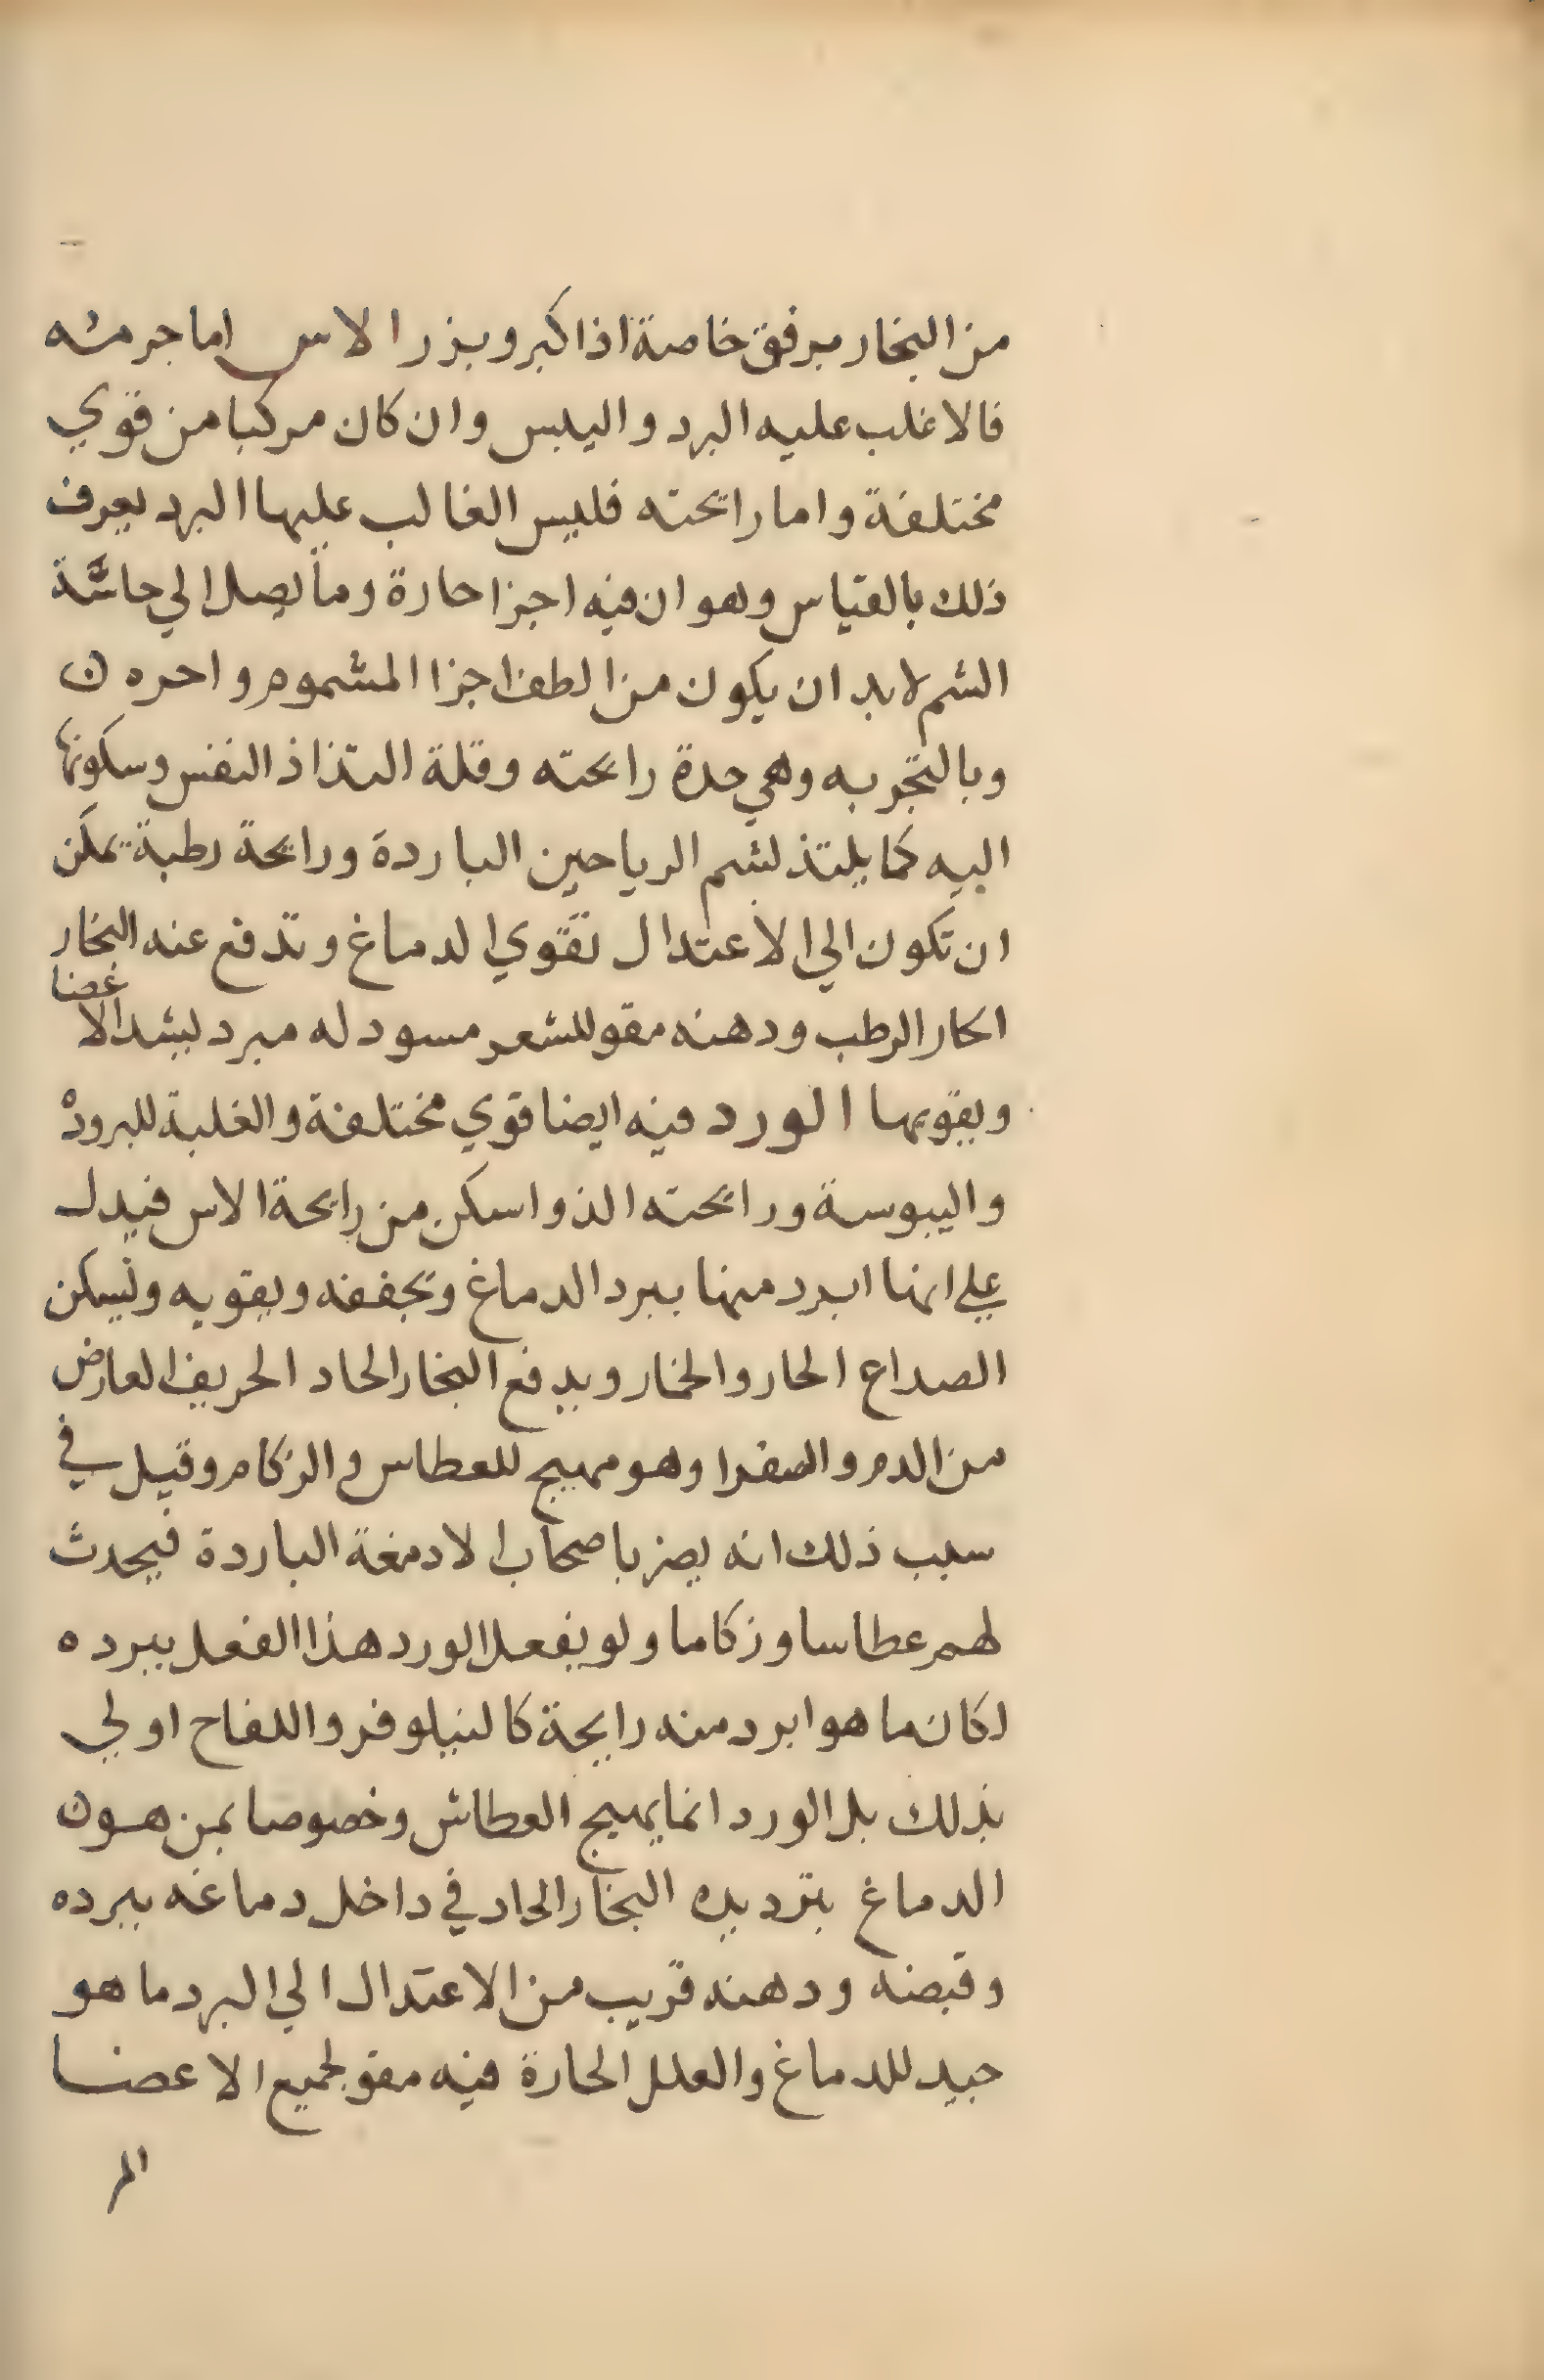 من البخار برفق خاصة اذا كبر وبزر الاس اما جرمه
فالاغلب عليه البرد واليبس وان كان مركبا من قوي
مختلفة واما رايحته فليس الغالب عليها البرد يعرف
ذلك بالقياس وهو ان فيه اجزا حارة وما يصل الي حاسة
الشم لا بد ان يكون من الطف اجزا المشموم واحره
وبالتجربه وهي حدة رايحته وقلة التذاذ النفس وسكونها
اليه كما يلتذ لشم الرياحين الباردة ورايحة رطبة يمكن
ان تكون الي الاعتدال تقوي الدماغ وتدفع عنه البخار
الحار الرطب ودهنه مقو للشعر مسود له مبرد يشد الاعضا
ويقويها الورد فيه ايضا قوي مختلفة والغلبة للبرودة
واليبوسة ورايحته الذ واسكن من رايحة الاس فيدل
علي انها ابرد منها يبرد الدماغ وتجففه ويقويه ويسكن
الصداع الحار والخمار ويدفع البخار الحاد الحريف العارض
من الدم والصفرا وهو مهيج للعطاس والزكام وقيل في
سبب ذلك انه يضر باصحاب الادمغة الباردة فيحدث
لهم عطاسا وزكاما ولو يفعل الورد هذا الفعل ببرده
لكان ما هو ابرد منه رايحة كالنيلوفر واللفاح اولي
بذلك بل الورد انما يهيج العطاش وخصوصا بمن هو
الدماغ بترديده البخار الحاد في داخل دماغه ببرده
وقبضه ودهنه قريب من الاعتدال الي البرد ما هو
جيد للدماغ والعلل الحارة فيه مقو لجميع الاعضا